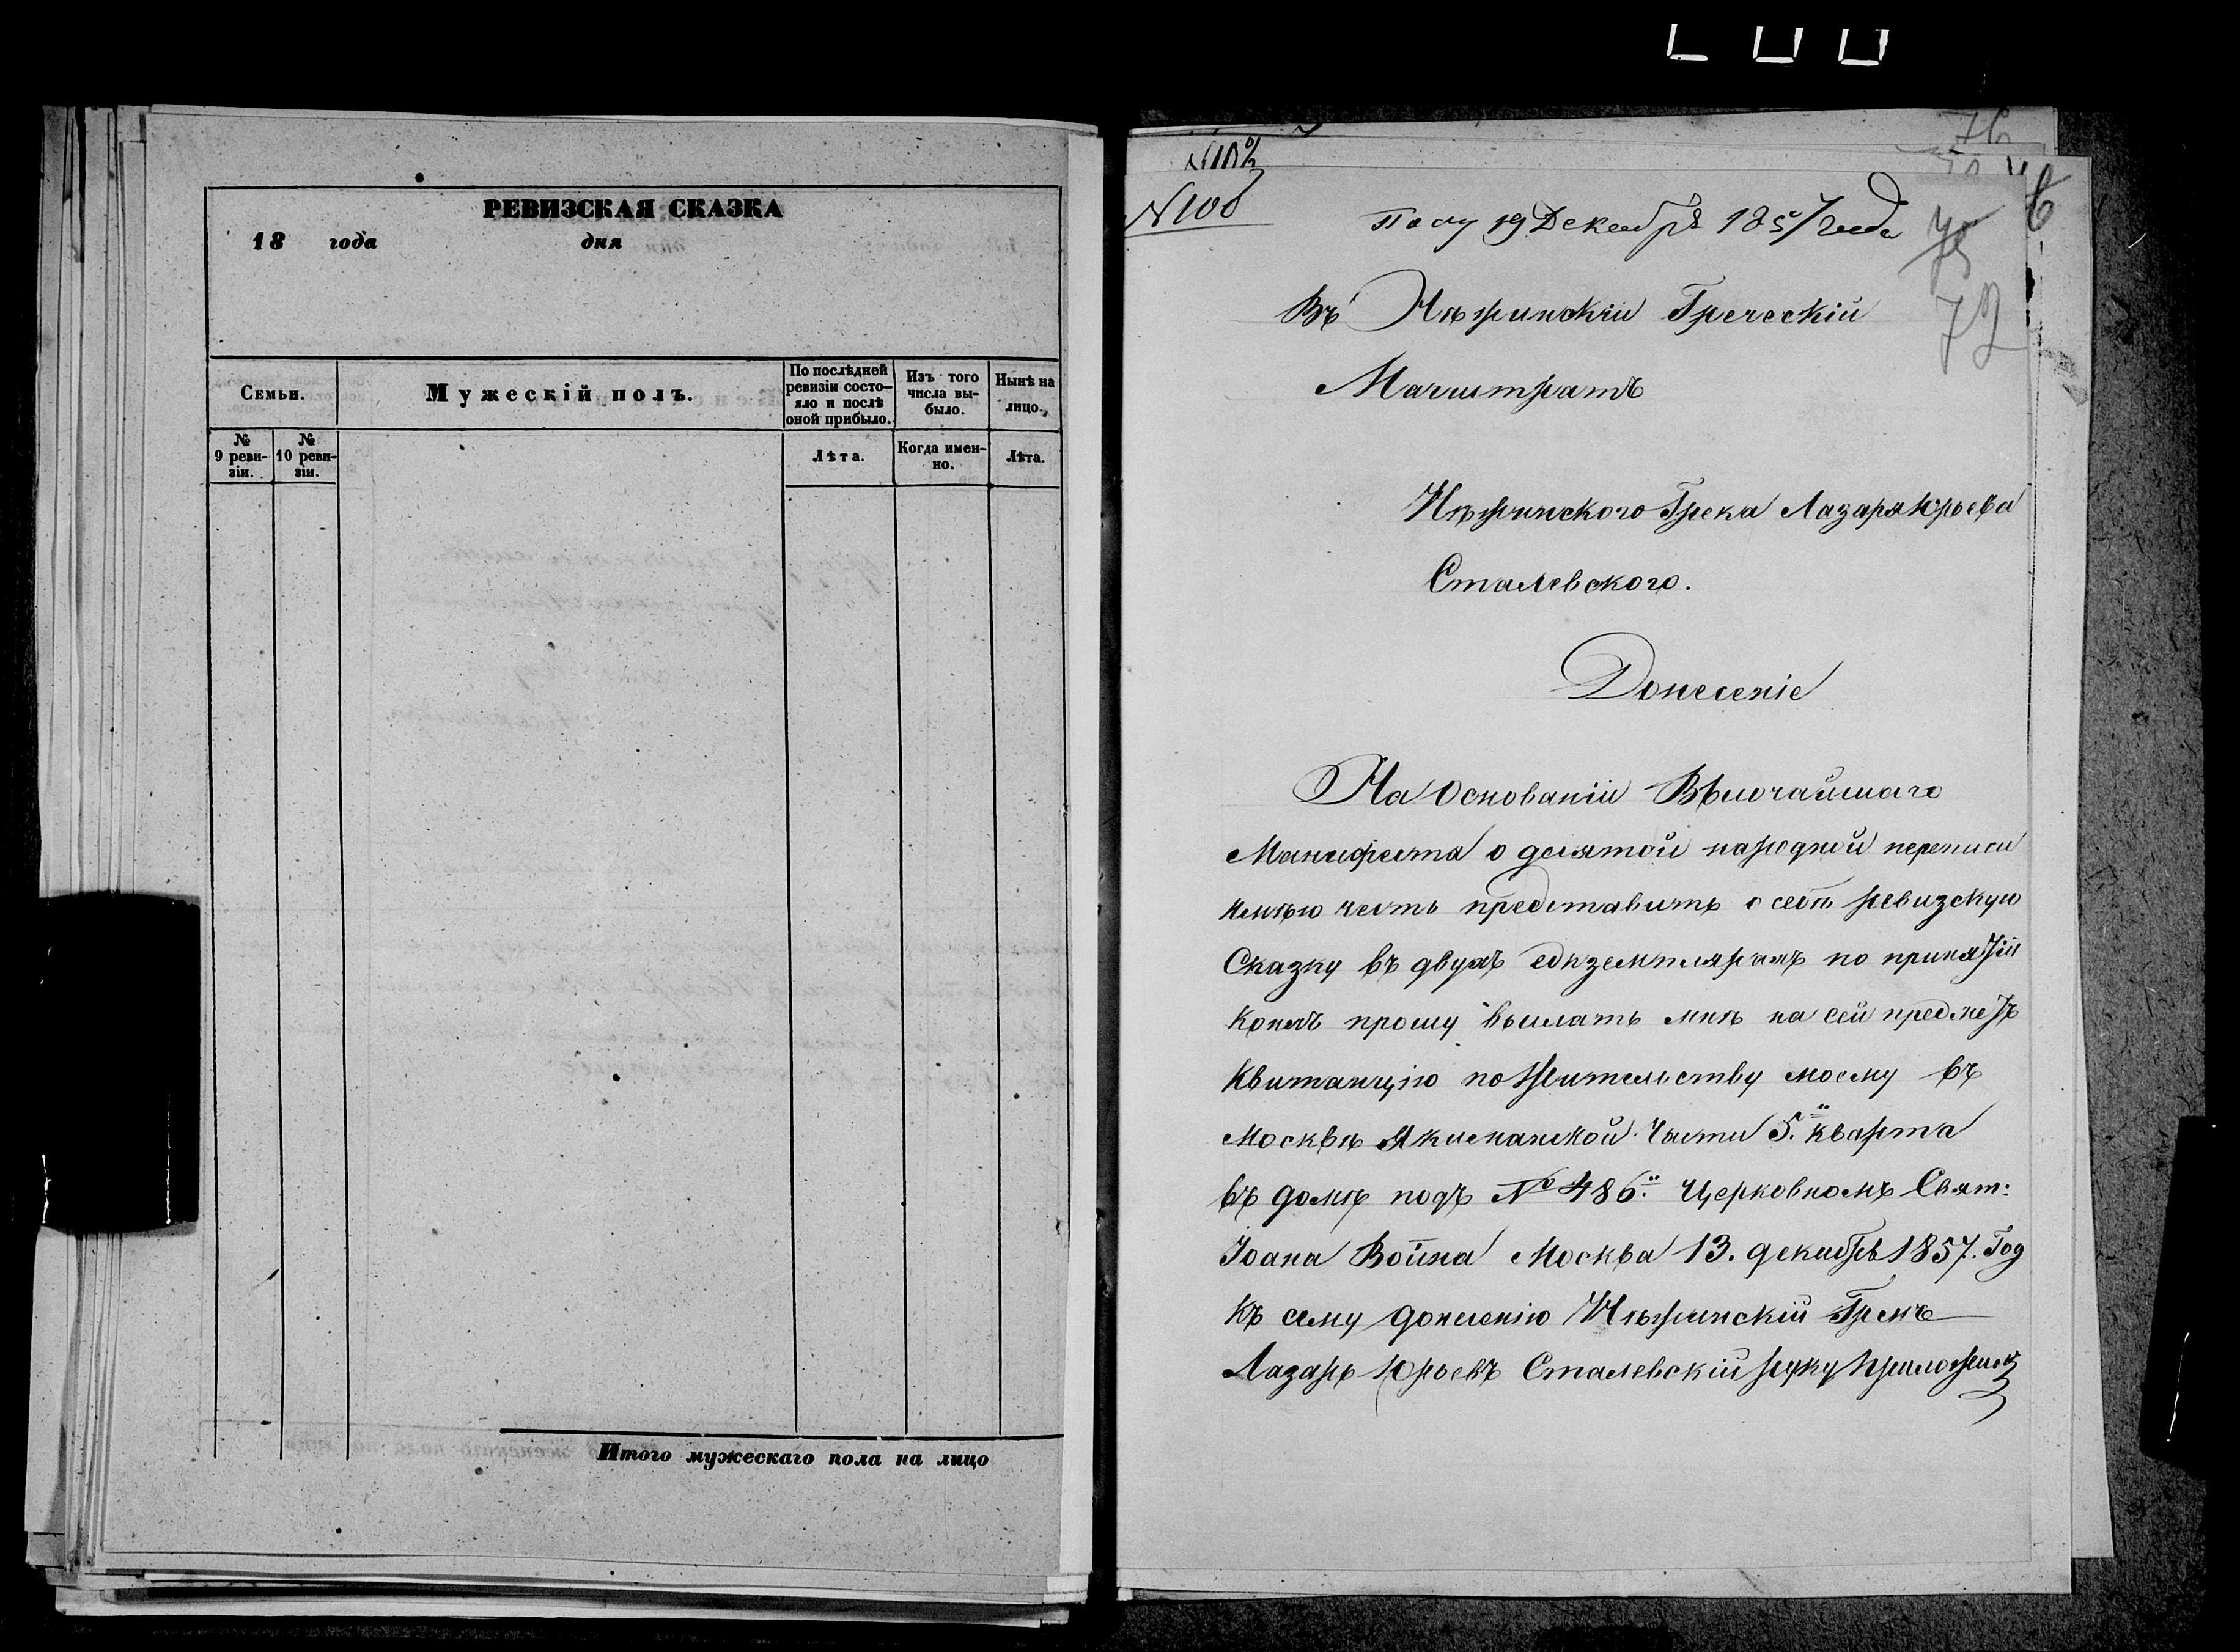 РЕВИЗСКАЯ СКАЗКА
18 года дня
Семьи.
Мужескій полъ.
По послѣдней ревизіи состо-
яло и послѣ оной прибыло.
Изъ того числа вы-
было.
Нынѣ на лицо.
№ 9 реви-
зіи.
№ 10 реви-
зіи.
Лѣта.
Когда имен-
но.
Лѣта.
Итого мужескаго пола на лицо
№108
Полу 19 Декабря 1857 года
75
72
Въ Нѣжинскій Греческій
Магистратъ
Нѣжинского Грека Лазаря Юрьева
Сталевского.
Донесеніе
На Основаніи Высочайшаго
Манифеста о десятой народной переписи
имѣю честь представить о себѣ ревизскую
Сказку въ двухъ едкземплярахъ по принятіи
коихъ прошу выслать мнѣ на сей предметъ
Квитанцію по Жительству моему въ
Москвѣ Якиманской Части 5.й кварта
въ домѣ подъ № 486.й Церковномъ Свят:
Іоана Воина Москва 13. декабря 1857. Год
Къ сему донесенію Нѣжинскій Грекъ
Лазарь Юрьевъ Сталевскій руку приложилъ